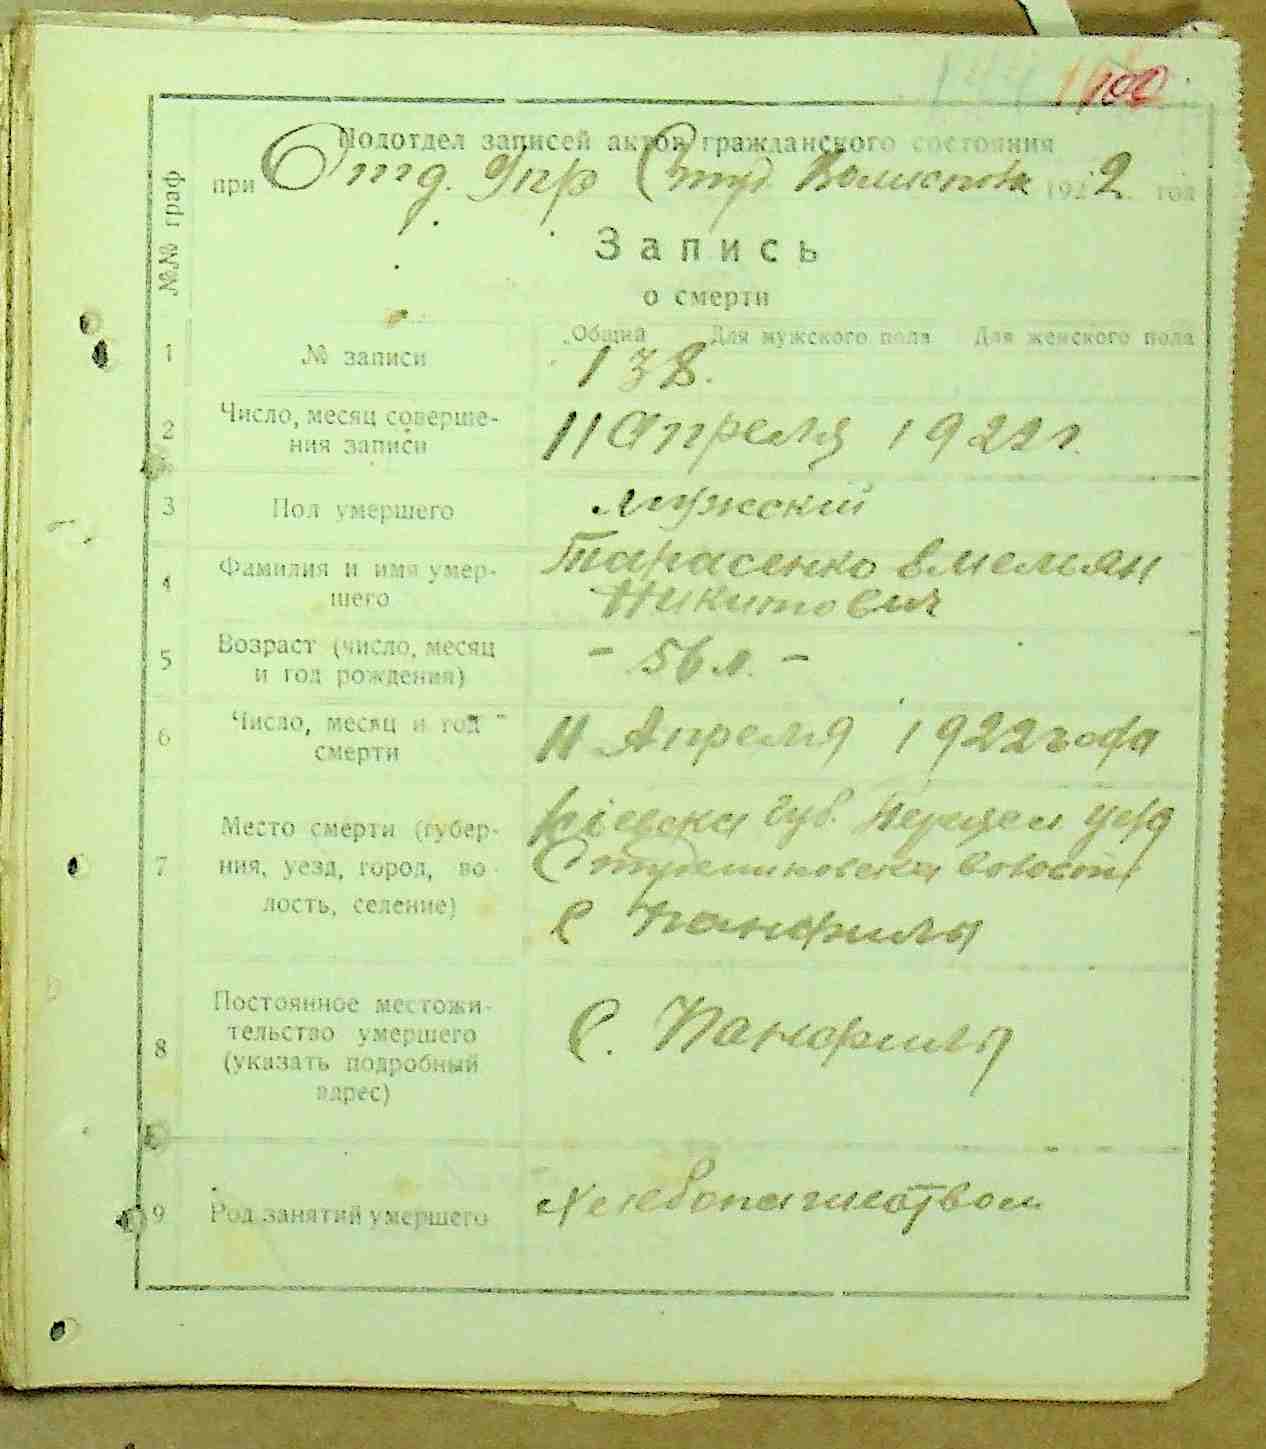 100
Подотдел записей актов гражданского состояния
при Отд. Упр Студ Волисполк 1922 год
№№ граф
Запись
о смерти
Общий Для мужского пола Для женского пола
1 № записи 138.
2 Число, месяц соверше-
ния записи 11 Апреля 1922 г.
3 Пол умершего мужский
4 Фамилия и имя умер-
шего Тарасенко Емельян
Никитович
5 Возраст (число, месяц
и год рождения) - 56 л. -
6 Число, месяц и год
смерти 11 Апреля 1922 года
7 Место смерти (губер-
ния, уезд, город, во-
лость, селение) Кіевска губ. уезд
Студениковска волости
С Панфилы
8 Постоянное местожи-
тельство умершего
(указать подробный
адрес) С. Панфилы
9 Род занятий умершего Хлебопашеством